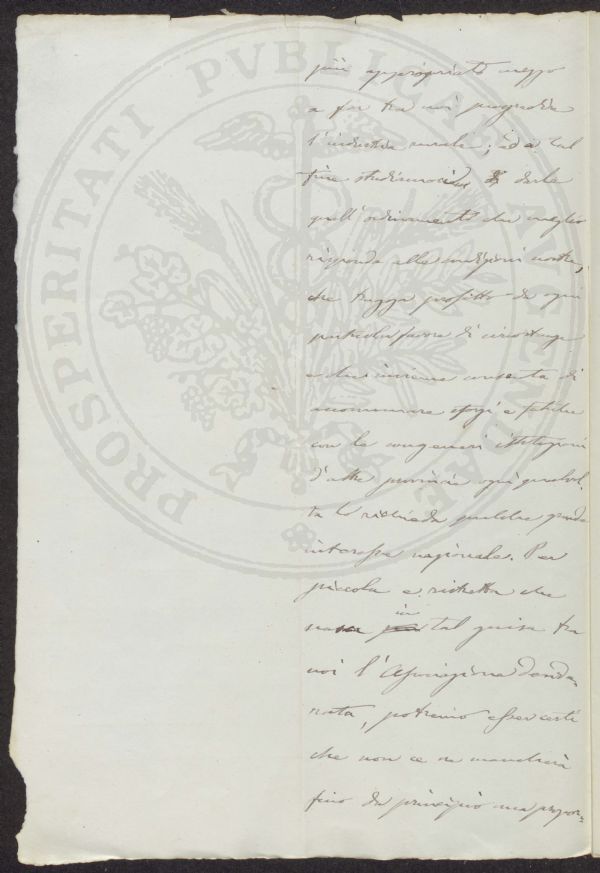 PROSPERITATI PVBLICAE AVGENDAE
più appropriato mezzo
a far tra noi progredire
l'industria rurale; ed a tal
fine studiamoci di darle
quell'ordinamento che meglio
risponda alle condizioni nostre,
che tragga profitto da ogni
particolar favore di circostanze
e che insieme consenta di
accomunare sforzi e fatiche
con le congeneri istituzioni
d'altre provincie ogni qualvol-
ta lo richieda qualche grande
interesse nazionale. Per
piccola e ristretta che
in
tal guisa tra
noi l'Associazione
potremo esser certi
che non ce ne mancherà
fino da principio una propor=